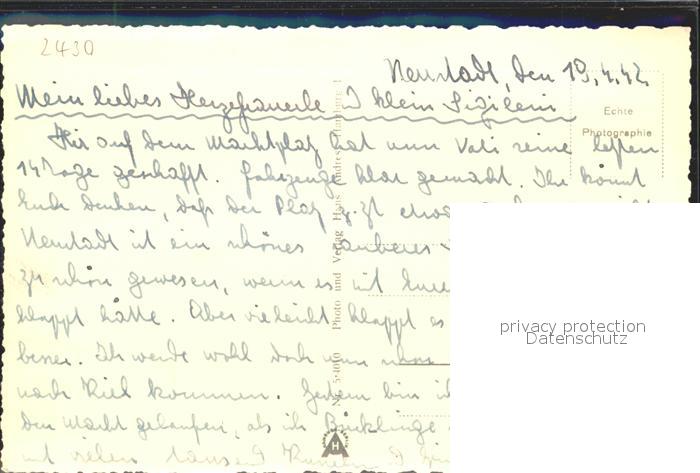 2430
Neustadt, den 19.4.42
Mein liebes Herzefrauerle
Hir auf dem Marktplatz hat nun Vati seine letzten
14 Tage geschafft. Fahrzeuge klar gemacht. Ihr könnt
Euch denken, daß der Platz z. Zt
Neustadt ist ein schönes sauberes
zu schön gewesen, wenn es mit Euer
klappt hätte. Aber vieleicht klappt es
besser. Ich werde wohl doch nun schon
nach Kiel kommen. Gestern bin ich
den Markt gelaufen, als ich Bücklinge
mit vielen tausend
Echte
Photographie
Photo und Verlag Hans Andres, Hamburg 1
Nr. 5/4010
H
privacy protection
Datenschutz